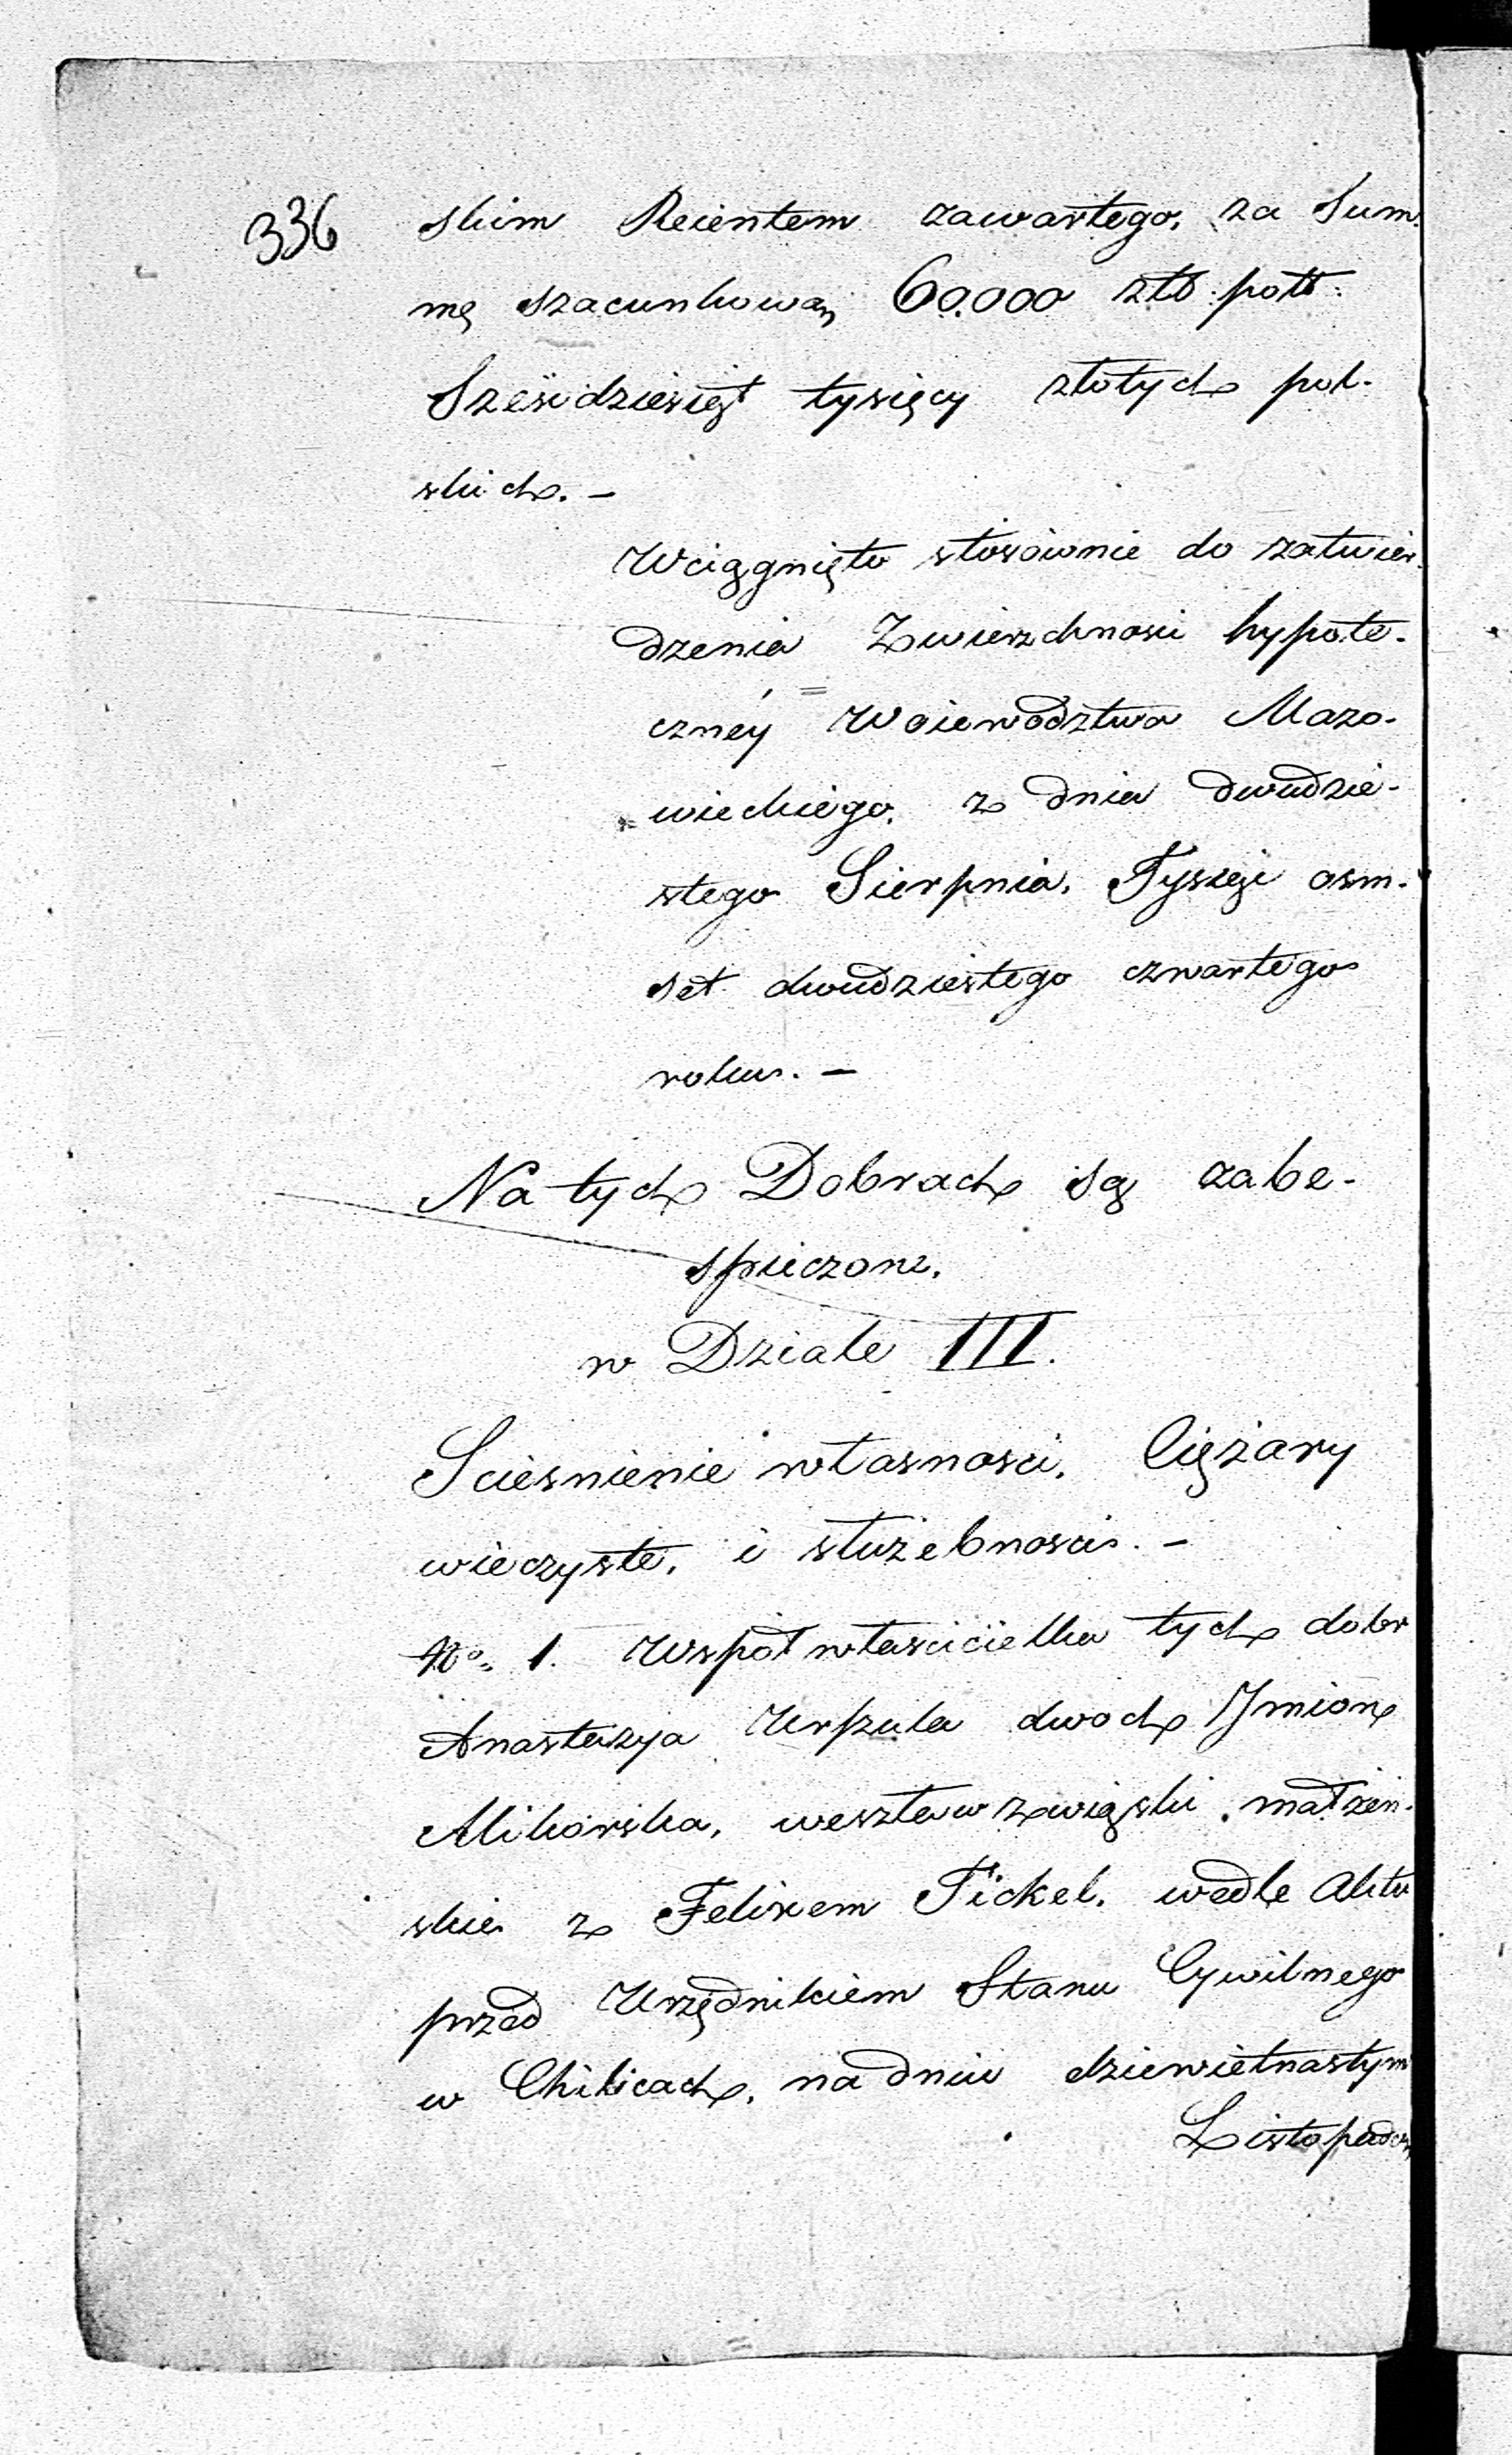 336
skim Reientem zawartego, za Sum-
mę szacunkową 60.000 złł: poll:
Szesćdziesiąt tysięcy złotych pol-
skich. –
Wciągnięto stosównie do zatwier-
dzenia Zwierzchnosci hypote-
cznéy Woiewodztwa Mazo-
wieckiego, z dnia dwudzie-
stego Sierpnia, Tysiąc osm-
set dwudziestego czwartego
roku. –
Na tych Dobrach są zabe-
spieczone,
w Dziale III.
Sciesnienie własnosci, Ciężary
wieczyste, i służebnosci. –
No. 1. Wspołwłascicielka tych dobr
Anastazya Urszula dwoch Jmion
Mikorska, weszła w związki małżeń-
skie z Felixem Fickel, wedle Aktu
przed Urzędnikiem Stanu Cywilnego
w Chilicach, na dniu dziewietnastym
Listopada